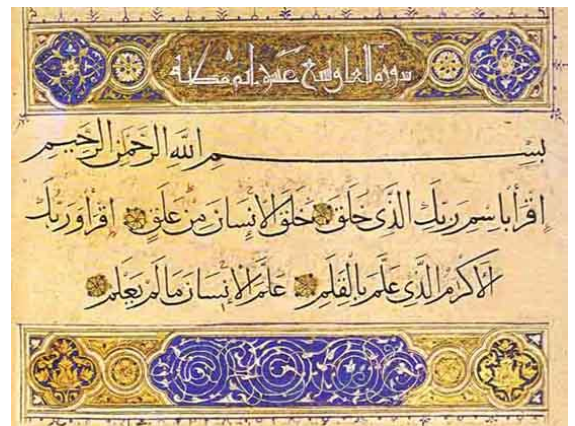 سورة العلق تسع عشر اية مكية
بِسْمِ اللَّهِ الرَّحْمَنِ الرَّحِيمِ
اِقْرَأْ بِاسْمِ رَبِّكَ الَّذِى خَلَقَ خَلَقَ الْاِنْسَانَ مِنْ عَلَقٍ اِقْرَأْ وَرَبُّكَ
الْاَكْرَمُ الَّذِى عَلَّمَ بِالْقَلَمِ عَلَّمَ الْاِنْسَانَ مَا لَمْ يَعْلَمْ